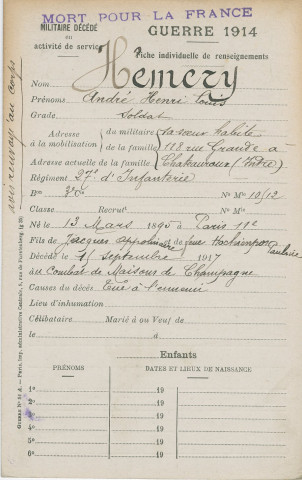 MORT POUR LA FRANCE
MILITAIRE DÉCÉDÉ
en
activité de service
GUERRE 1914
Fiche individuelle de renseignements
Nom Hemery
Prénoms André Henri Louis
Grade Soldat
Adresse à la mobilisation du militaire sa sœur habite
de la famille 118 rue Grande à
Adresse actuelle de la famille Chateauroux (Indre)
Régiment 27e d'Infanterie
Bon 3e Cie No Mle 10/12
Classe Recrut No Mle
Né le 13 Mars 1895 à Paris 11e
Fils de Jacques et de feue Pauline
Décédé le 15 septembre 1917
au Combat de Maisons de Champagne
Causes du décès Tué à l'ennemi
Lieu d'inhumation
Célibataire Marié à ou Veuf de
le à
Enfants
PRÉNOM DATES ET LIEUX DE NAISSANCE
1o 19
2o 19
3o 19
4o 19
5o 19
6o 19
avis au corps
Paris, Imp. administrative Centrale, 8, rue de Furstenberg